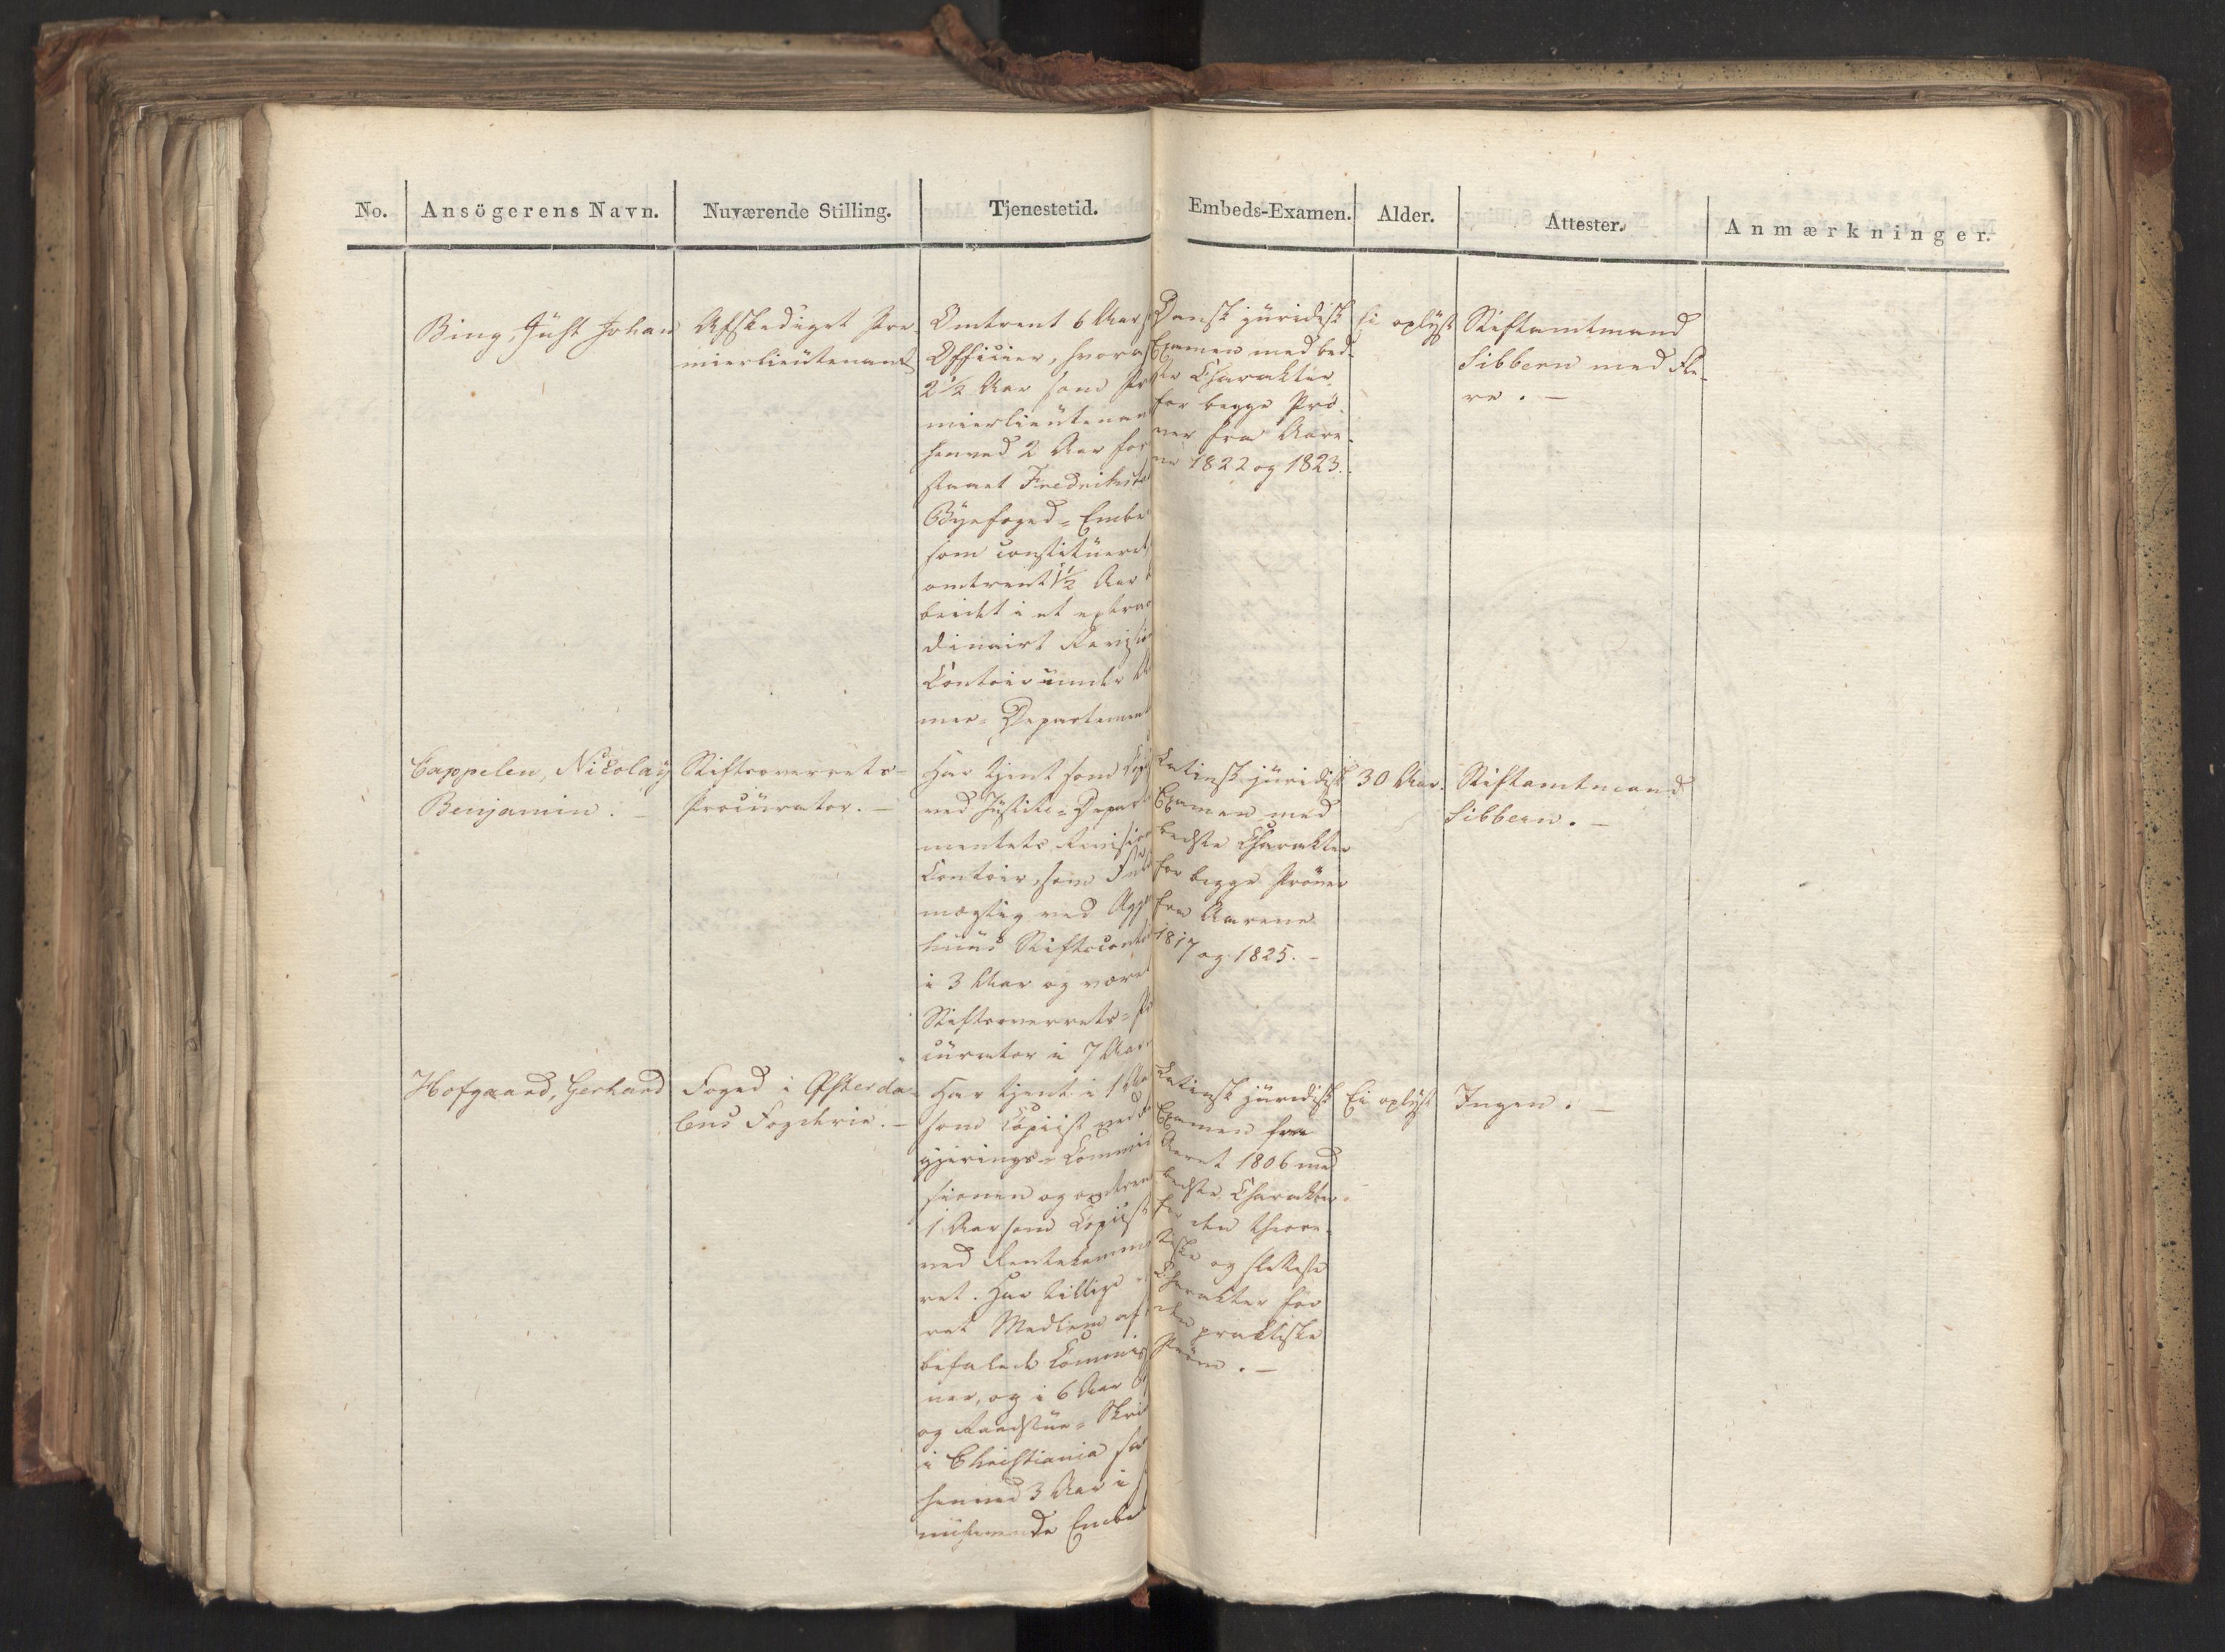 No.
Ansögerens Navn.
Nuværende Stilling.
Tjenestetid.
Embeds-Examen.
Alder.
Attester.
Anmærkninger.
Bing, Just Johan
Afskediget Pre-
mierlieutenant
Omtrent 6 Aar
Officier, hvoraf
2½ Aar som Pr
mierlieutenan
henved 2 Aar for
staaet Fredriksta
Byefoged-Embe
som constitueret
omtrent 1½ Aar
beidet i et extraor
dinairt Revision
Contoir under
mer-Departement
Dansk juridisk
Examen med bed-
ste Charakter
for begge Prö-
ver fra Aare-
ne 1822 og 1823.
Ei oplyst
Stiftamtmand
Sibbern med Fle-
re. —
Cappelen, Nicolay
Benjamin. —
Stiftsoverrets-
Procurator. —
Har tjent som Copi
ved Justits-Depart
mentets Revision
Contoir, som Fuld
mægtig ved Agger
huus Stiftscontoi
i 3 Aar og været
Stiftsoverrets-Pr
curator i 7 Aar
Latinsk juridisk
Examen med
bedste Charakter
for begge Pröver
fra Aarene
1817 og 1825. —
30 Aar.
Stiftamtmand
Sibbern. —
Hofgaard, Gerhard
Foged i Österda-
lens Fogderie. —
Har tjent i 1 Aa
som Copiist ved
gjerings-Commis
sionen og omtrent
1 Aar som Copiist
ved Rentekamme
ret. Har tillige
ret Medlem af
befalede Commis
ner, og i 6 Aar
og Raadstue-Skri
i Christiania sa
henved 3 Aar i
nuhavende Embe
Latinsk juridisk
Examen fra
Aaret 1806 med
bedste Charakter
for den theore-
tiske og sletteste
Charakter for
den praktiske
Pröve. —
Ei oplyst
Ingen. —